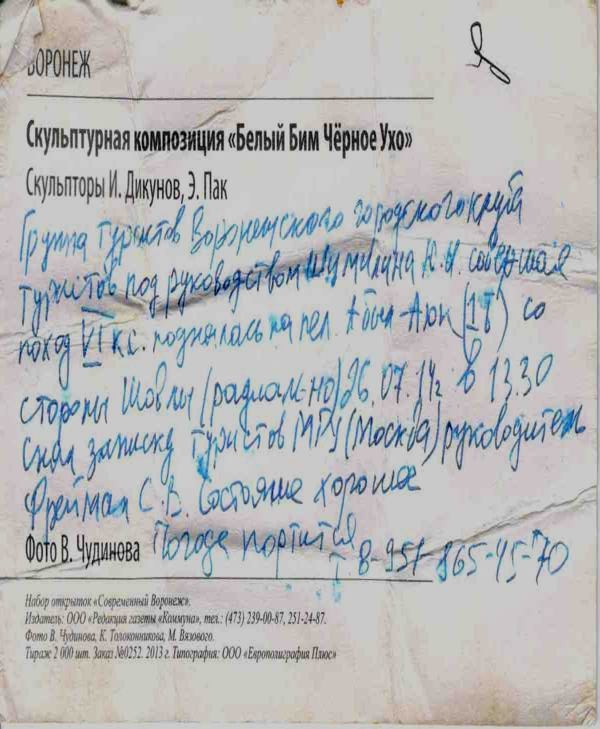 ВОРОНЕЖ
Скульптурная композиция «Белый Бим Чёрное Ухо»
Скульпторы И. Дикунов, Э. Пак
Группа туристов Воронежского городского круга
туристов под руководством Шумилина совершая
поход VI кс. поднялась на пер. (1Б) со
стороны Шавлы (радиально) 26.07.14г в 13.30
Снял записку туристов МГУ (Москва) руководитель
Фрейман С.В. Состояние хорошее
Фото В. Чудинова Погода портится 8-951-865-45-70
Набор открыток «Современный Воронеж».
Издатель: ООО «Редакция газеты «Коммуна», тел.: (473) 239-00-87, 251-24-87.
Фото В. Чудинова, К. Толоконникова, М. Вязового.
Тираж 2 000 шт. Заказ №0252. 2013 г. Типография: ООО «Европолиграфия Плюс»